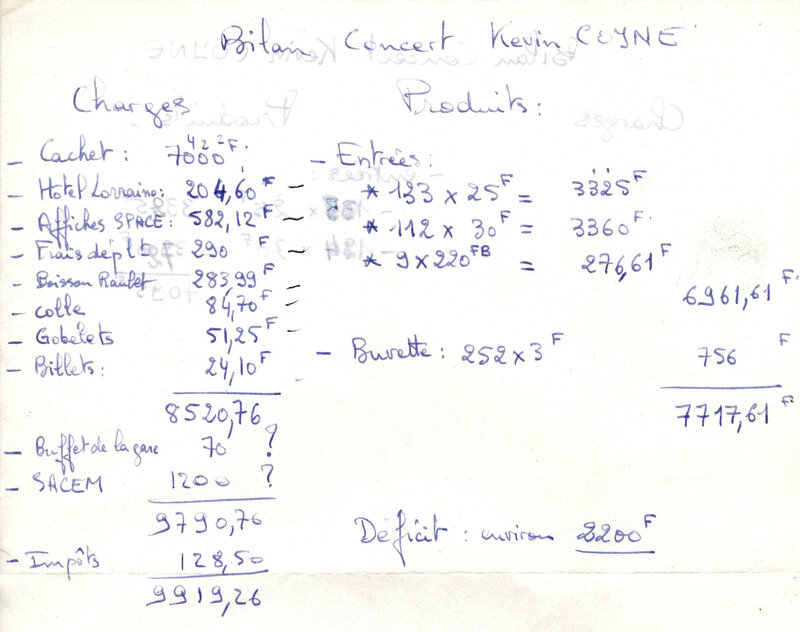 Bilan Concert Kevin COYNE
Charges
- Cachet : 7000 F
- Hotel Lorraine : 204,60 F -
- Affiches SPACE : 582,12 F -
- Frais déplt 290 F -
- Boisson Raulet 283,99 F -
- colle 84,70 F -
- Gobelets 51,25 F -
- Billets : 24,10 F
8520,76
- Buffet de la gare 70 ?
- SACEM 1200 ?
9790,76
- Impôts 128,50
9919,26
Produits :
- Entrées :
* 133 x 25 F = 3325 F
* 112 x 30 F = 3360 F
* 9 x 220 FB = 276,61 F
6961,61 F
- Buvette : 252 x 3 F 756 F
7717,61 F
Déficit : environ 2200 F